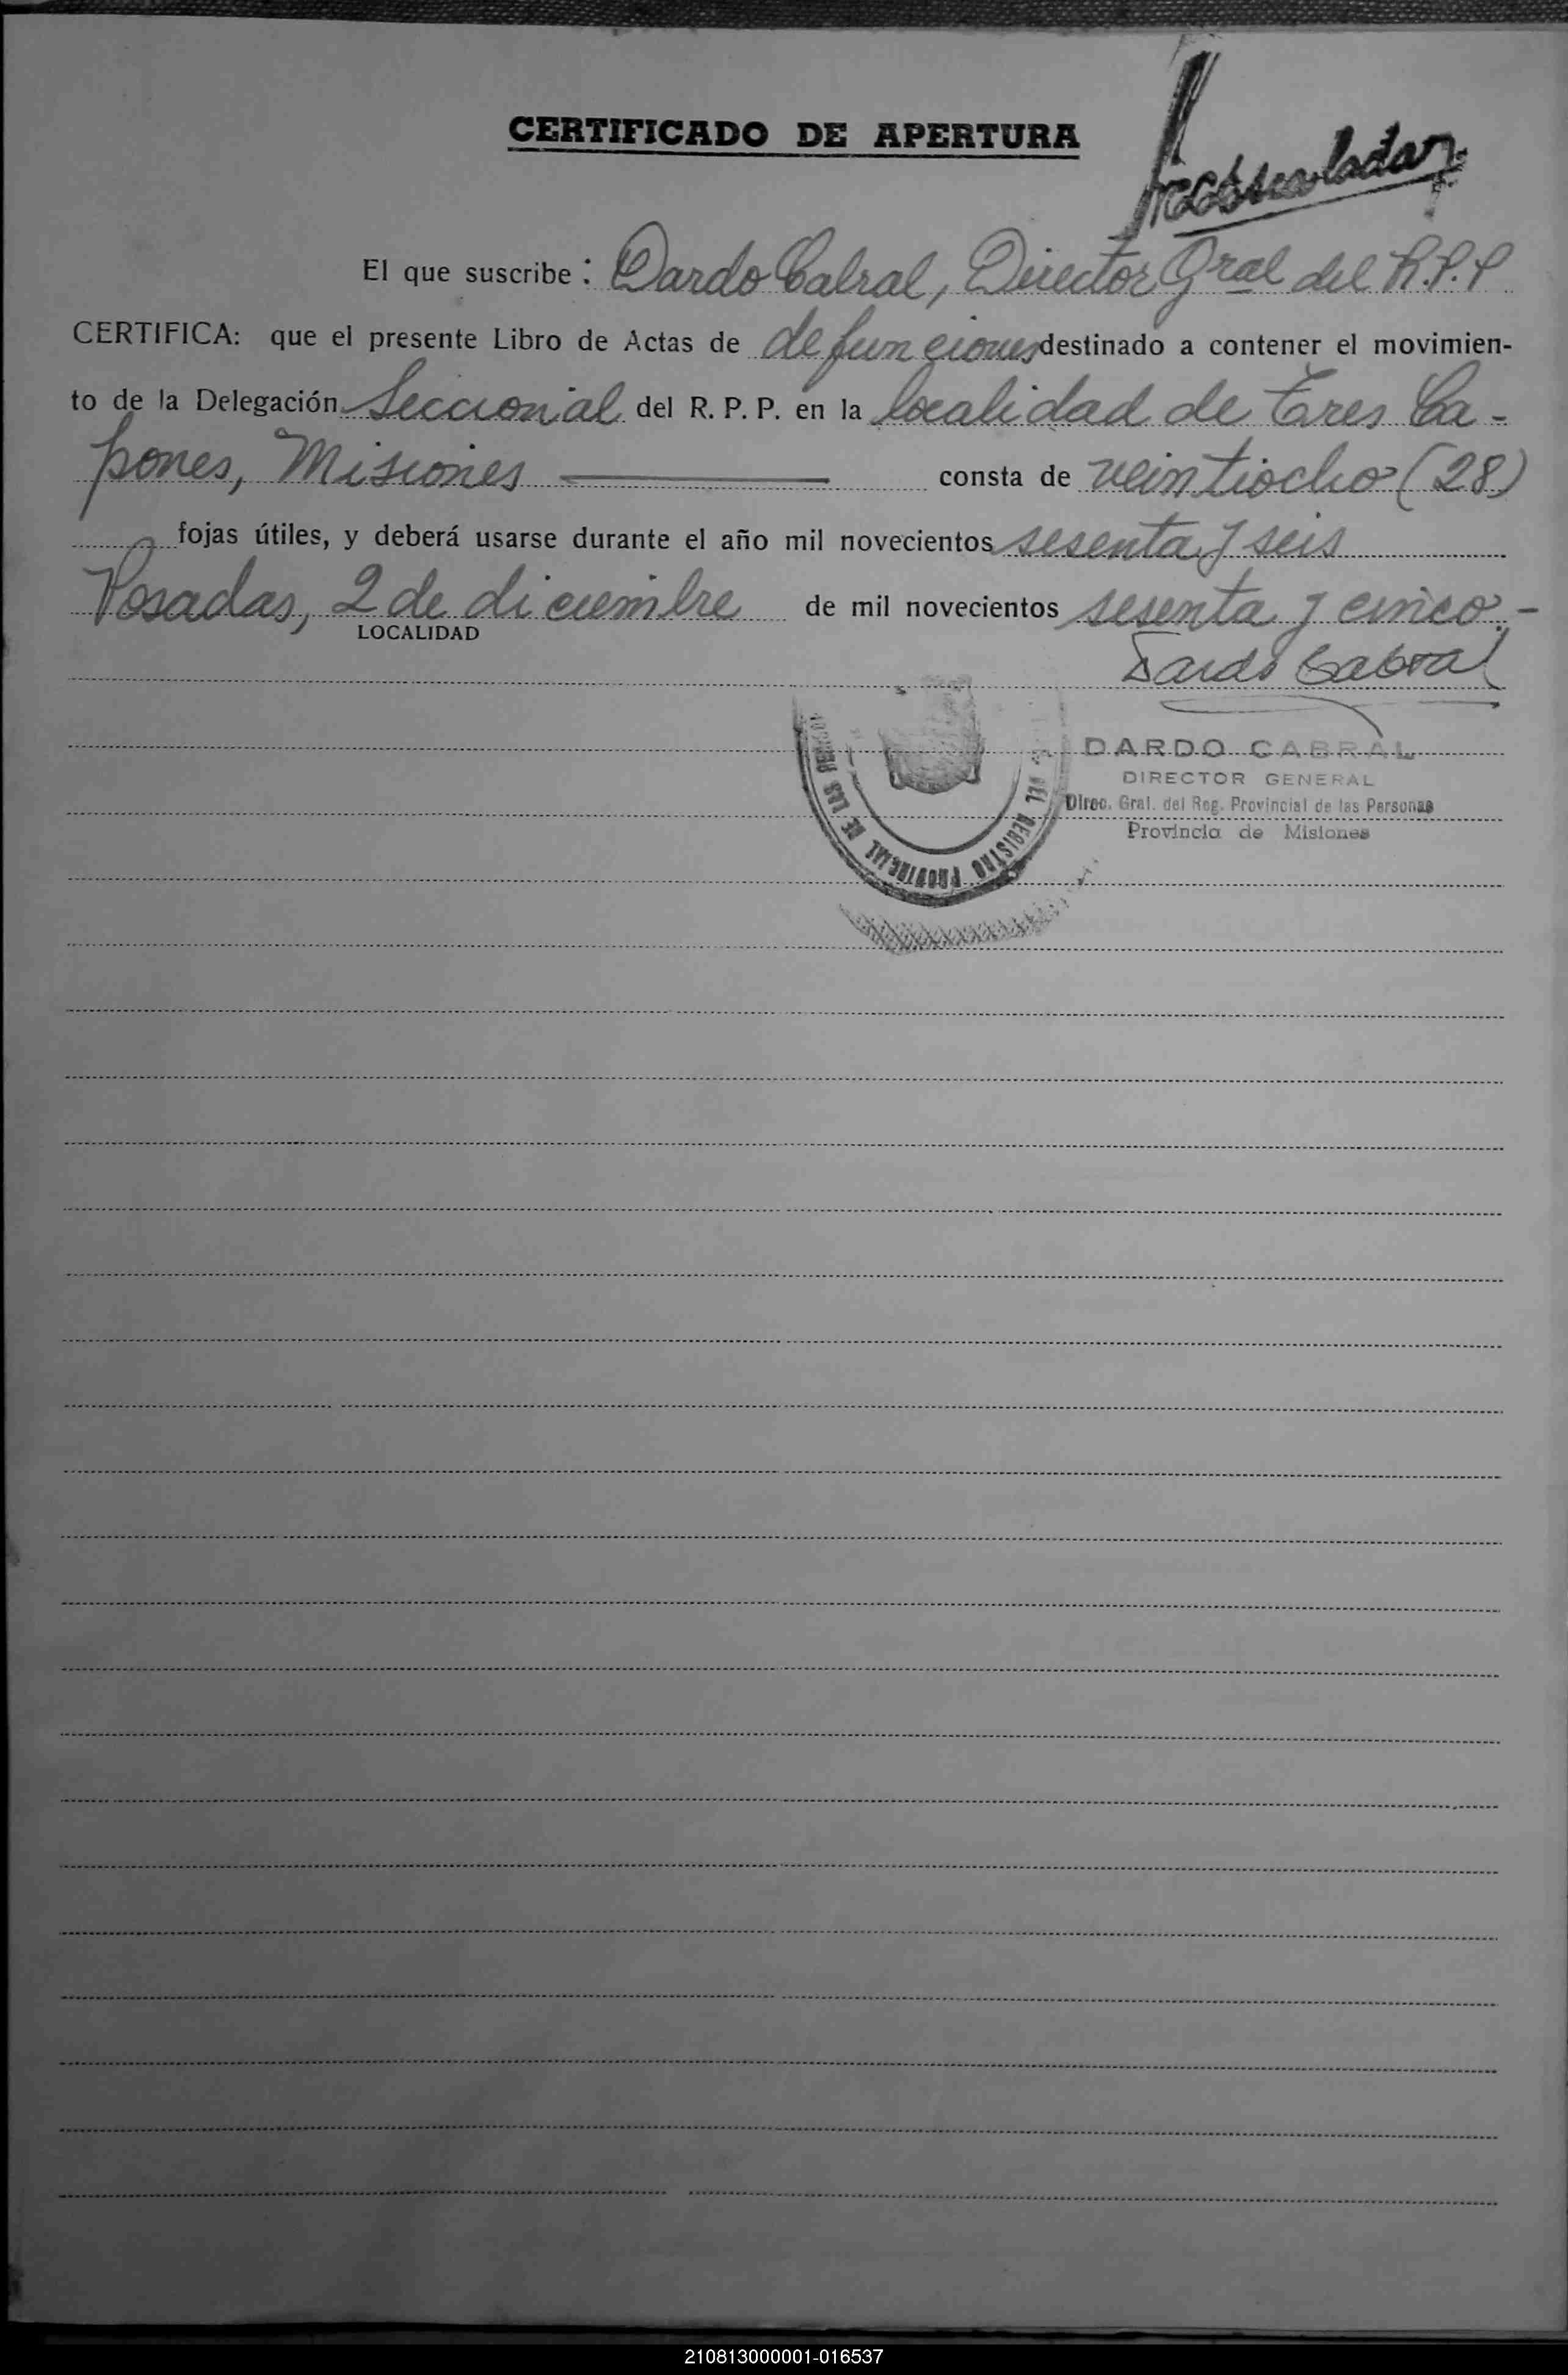 CERTIFICADO DE APERTURA
El que suscribe: Dardo Cabral, Director Gral del R.P.P
CERTIFICA: que el presente Libro de Actas de defunciones destinado a contener el movimien-
to de la Delegación Seccional del R. P. P. en la localidad de Tres Ca-
pones, Misiones consta de veintiocho (28)
fojas útiles, y deberá usarse durante el año mil novecientos sesenta y seis
Posadas, 2 de diciembre de mil novecientos sesenta y cinco.-
LOCALIDAD
Dardo Cabral
DARDO CABRAL
DIRECTOR GENERAL
Direc. Gral. del Reg. Provincial de las Personas
Provincia de Misiones
DEL REGISTRO PROVINCIAL DE LAS PERSONAS
210813000001-016537